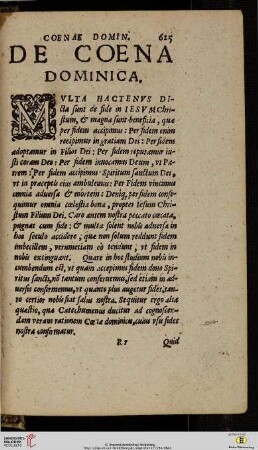 COENAE DOMIN. 625
DE COENA
DOMINICA.
MVLTA HACTENVS DI-
cta sunt de fide in IESVM Chri-
stum, & magna sunt beneficia, quæ
per fidem accipimus: Per fidem enim
recipimur in gratiam Dei: Per fidem
adoptamur in Filios Dei: Per fidem reputamur iu-
sti coram Deo: Per fidem inuocamus Deum, vt Pa-
trem: Per fidem accipimus Spiritum sanctum Dei,
vt in præceptis eius ambulemus: Per Fidem vincimus
omnia aduersa & mortem: Deniq, per fidem conse-
quimur omnia cœlestia bona, propter Iesum Chri-
stum Filium Dei. Caro autem nostra peccato obcæcata,
pugnat cum fide: & multa solent nobis aduersa in
hoc seculo accidere, quæ non solum reddunt fidem
imbecillem, verumetiam eò tendunt, vt fidem in
nobis extinguant. Quare in hoc studium nobis in-
cumbendum est, vt quam accepimus fidem dono Spi-
ritus sancti, nō tantum conseruemus, sed etiam in ad-
uersis confirmemus, vt quanto plus augetur fides, tan-
to certior nobis fiat salus nostra. Sequitur ergo alia
quæstio, qua Catechumenus ducitur ad cognoscen-
dam veram rationem Cœnæ dominicæ, cuius vsu fides
nostra confirmatur.
Rr Quid